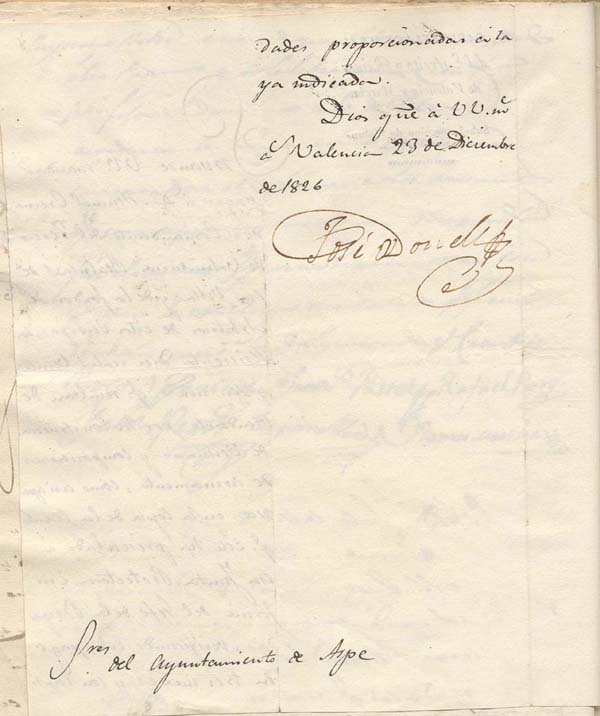 dades proporcionadas á la
ya indicada.
Dios gue á VV. ms
as Valencia 23 de Diciembre
de 1826
José O Donell
Sres
del Ayuntamiento de Aspe